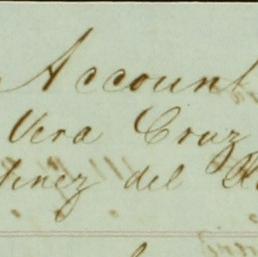 Account
Vera Cruz
tinez del R